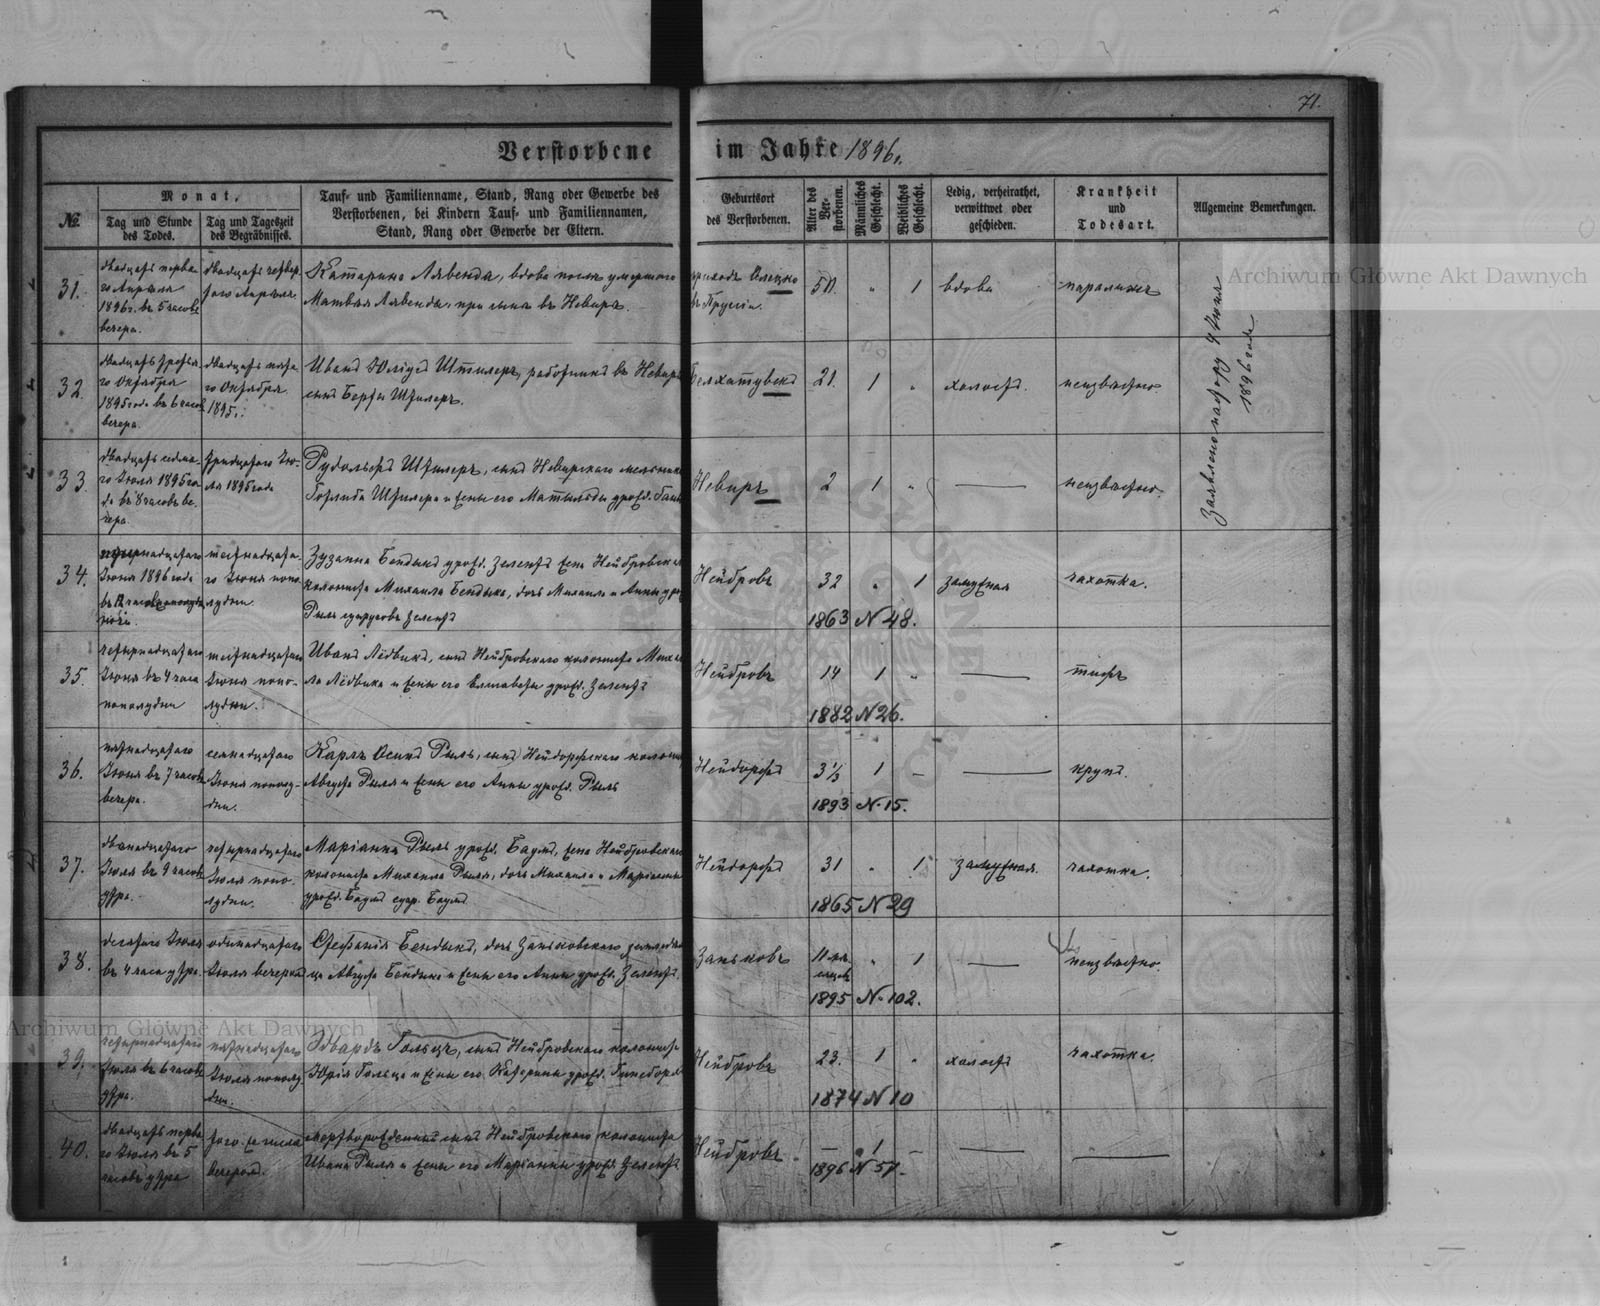 71.
Verstorbene im Jahre 1896.
№.
Monat,
Tag und Stunde des Todes.
Tag und Tageszeit des Begräbnisses.
Tauf- und Familienname, Stand, Rang oder Gewerbe des
Verstorbenen, bei Kindern Tauf- und Familiennamen,
Stand, Rang oder Gewerbe der Eltern.
Geburtsort
des Verstorbenen.
Alter des Ver-
storbenen.
Männliches
Geschlecht.
Weibliches
Geschlecht.
Ledig, verheirathet,
verwittwet oder
geschieden.
Krankheit
und
Todesart.
Allgemeine Bemerkungen.
31.
двадцать перва-
го Апреля
1896 г. въ 5 часовъ
вечера.
двадцать четвер-
таго Апреля
Катарина Лявенда, вдова послѣ умершаго
Матвѣя Лявенды, при сынѣ въ Невирѣ.
приходъ Олецко
въ Пруссіи.
50. " 1
вдова
параличъ
32.
двадцать третья-
го Октября
1895 года въ 6 часовъ
вечера.
двадцать пята-
го Октября
1895 г.
Иванъ Юліусъ Штилеръ, работникъ въ Невирѣ
сынъ Штилеръ.
Белхатувекъ
21. 1 "
холостъ.
неизвѣстно
33.
двадцать седма-
го Іюля 1895 го-
да въ 8 часовъ ве-
чера.
тридцатаго Ію-
ля 1895 года
Рудольфъ Штилеръ, сынъ Невирскаго мельника
Готлиба Штилера и жены его Матыльды урожд.
Невиръ
2 1 "
неизвѣстно.
Заявлено пастору 4 Іюня
1896 года
34.
Іюня 1896 года
въ 12 часовъ
ночи.
шестнадцата-
го Іюня попо-
лудни.
Зузанна Бендыкъ урожд. Зелентъ жена Нейбровскаго
колониста Михаила Бендыка, дочь Михаила и Анны урож.
Рыль супруговъ Зелентъ
Нейбровъ
32 " 1
1863 N 48.
замужная
чахотка.
35.
четырнадцатаго
Іюня въ 4 часа
пополудни
шестнадцатаго
Іюня попо-
лудни.
Иванъ Лёдвикъ, сынъ Нейбровскаго колониста Миха-
ла Лёдвика и жены его Елисаветы урожд. Зелентъ
Нейбровъ
14 1 "
1882 N 26.
тифъ
36.
пятнадцатаго
Іюня въ 7 часовъ
вечера.
семнадцатаго
Іюня пополу-
дни.
Карлъ Осипъ Рыль, сынъ Нейдорфскаго колониста
Августа Рыля и жены его Анны урожд. Рыль
Нейдорфъ
3 1/3 1 –
1893 N. 15.
крупъ.
37.
двенадцатаго
Іюля въ 9 часовъ
утра.
четырнадцатаго
Іюля попо-
лудни.
Маріанна Рыль урожд. Баумъ, жена Нейбровскаго
колониста Михаила Рыля, дочь Михаила и Маріанны
урожд. Баумъ супр. Баумъ
Нейдорфъ
31 " 1
1865 N 29
замужная.
чахотка.
38.
десятаго Іюля
въ 4 часа утра.
одинадцатаго
Іюля вечеромъ
Стефанія Бендыкъ, дочь Заньковскаго
Августа Бендыка и жены его Анны урожд. Зелентъ.
Заньковъ
11 мѣ-
сяцовъ
" 1
1895 N. 102.
неизвѣстно.
39.
четырнадцатаго
Іюля въ 6 часовъ
утра.
пятнадцатаго
Іюля пополу-
дни.
Эдвардъ Гольцъ, сынъ Нейбровскаго колониста
Юрія Гольца и жены его Катарины урожд. Гинсборгъ
Нейбровъ
23. 1 "
1874 N 10
холостъ
чахотка.
40.
двадцать перва-
го Іюля въ 5
часовъ утра
того-же числа
вечеромъ.
мертворожденный сынъ Нейбровскаго колониста
Ивана Рыля и жены его Маріанны урожд. Зелентъ
Нейбровъ
– 1 –
1896 N 57.
Archiwum Główne Akt Dawnych
Archiwum Główne Akt Dawnych